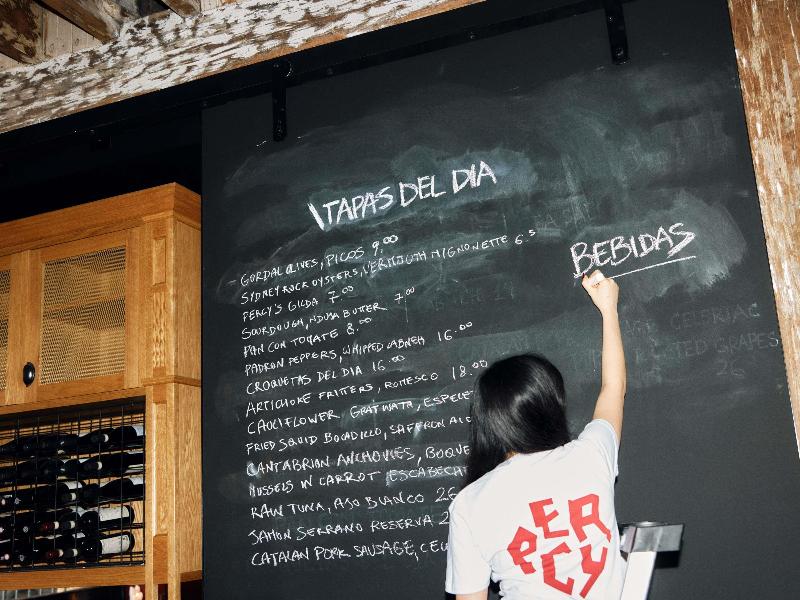 TAPAS DEL DIA
- GORDAL OLIVES, PICOS 9.00
SYDNEY ROCK OYSTERS, VERMOUTH MIGNONETTE 6.5
PERCY'S GILDA 7.00
SOURDOUGH, NDUJA BUTTER 7.00
PAN CON TOMATE 8.00
PADRON PEPPERS, WHIPPED LABNEH 16.00
CROQUETAS DEL DIA 16.00
ARTICHOKE FRITTERS, ROMESCO 18.00
CAULIFLOWER GRATINATA, ESPELET
FRIED SQUID BOCADILLO, SAFFRON
CANTABRIAN ANCHOVIES, BOQUE
MUSSELS IN CARROT ESCABECH
RAW TUNA, AJO BLANCO 26
JAMON SERRANO RESERVA 2
CATALAN PORK SAUSAGE,
BEBIDAS
CELERIAC
GRAPES
26
PERCY